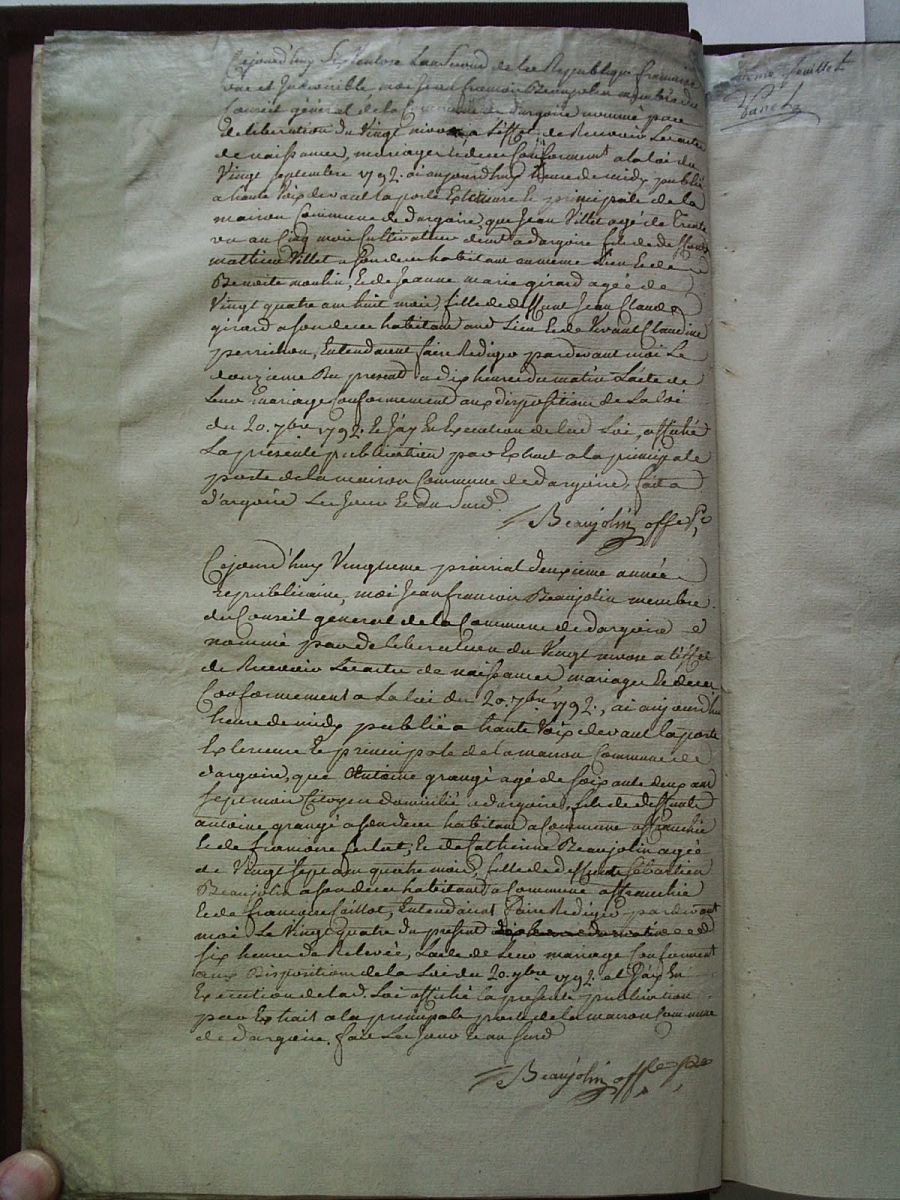 Cejourd'huy Sept ventose L'an Second de la Republique francaise
une et Indivisible moi Jean francois Beaujolin membre du
Conseil général de la Commune de dargoire nommé par
deliberation du Vingt nivose a L'effet de Recevoir Les actes
de naissances, mariages et deces Conformement a la loi du
Vingt Septembre 1792. ai aujourdhuy heure de midy publié
a haute Voix devant la porte Exterieure Et principale de la
maison Commune de dargoire, que Jean Villet agé de trente
un an Cinq mois Cultivateur demt a dargoire fils de deffunt
mathieu Villet a son deces habitant au meme Lieu Et de
Benoite moulin, Et de Jeanne marie girard agée de
Vingt quatre ans huit mois, fille de deffunt Jean Claude
girard a son deces habitant aud Lieu Et de Vivant Claudine
perrichon, Entendaient faire Rediger pardevant moi Le
douzieme Du present a dix heures du matin Lacte de
Leur mariage Conformement aux dispositions de La loi
du 20. 7bre 1792. Et J'ay En Execution de lad Loi, affiché
La presente publication par Extrait a la principale
porte de la maison Commune de dargoire, fait a
dargoire Les Jour Et an Susd.
Beaujolin off. pc
Cejourd'huy Vingtieme prairial deuxieme année
republicaine, moi Jean francois Beaujolin membre
du Conseil général de la Commune de dargoire
nommé par deliberation du Vingt nivose a L'effet
de Recevoir Les actes de naissances mariages Et deces,
Conformement a La loi du 20. 7bre 1792., ai aujourd'huy
heure de midy publié a haute Voix devant la porte
Exterieure Et principale de la maison Commune de
dargoire, que Antoine grangé agé de Soixante deux ans
Sept mois Citoyen domicilié a dargoire fils de deffunt
antoine grangé a son deces habitant a Commune affranchie
Et de francoise, Et de Catherine Beaujolin agée
de Vingt Sept ans quatre mois, fille de deffunt Sebastien
Beaujolin a son deces habitant a Commune affranchie
Et de francoise Caillot, Entendaient faire Rediger pardevant
moi Le Vingt quatre du present a dix heures du matin
Six heures de Relevée, Lacte de Leur mariage Conformement
aux Dispositions de la Loi du 20. 7bre 1792. et J'ay En
Execution de lad. Loi affiché La presente publication
par Extrait a la principale porte de la maison Commune
de dargoire. fait Les Jour et an Susd
Beaujolin off. pc
feuillet